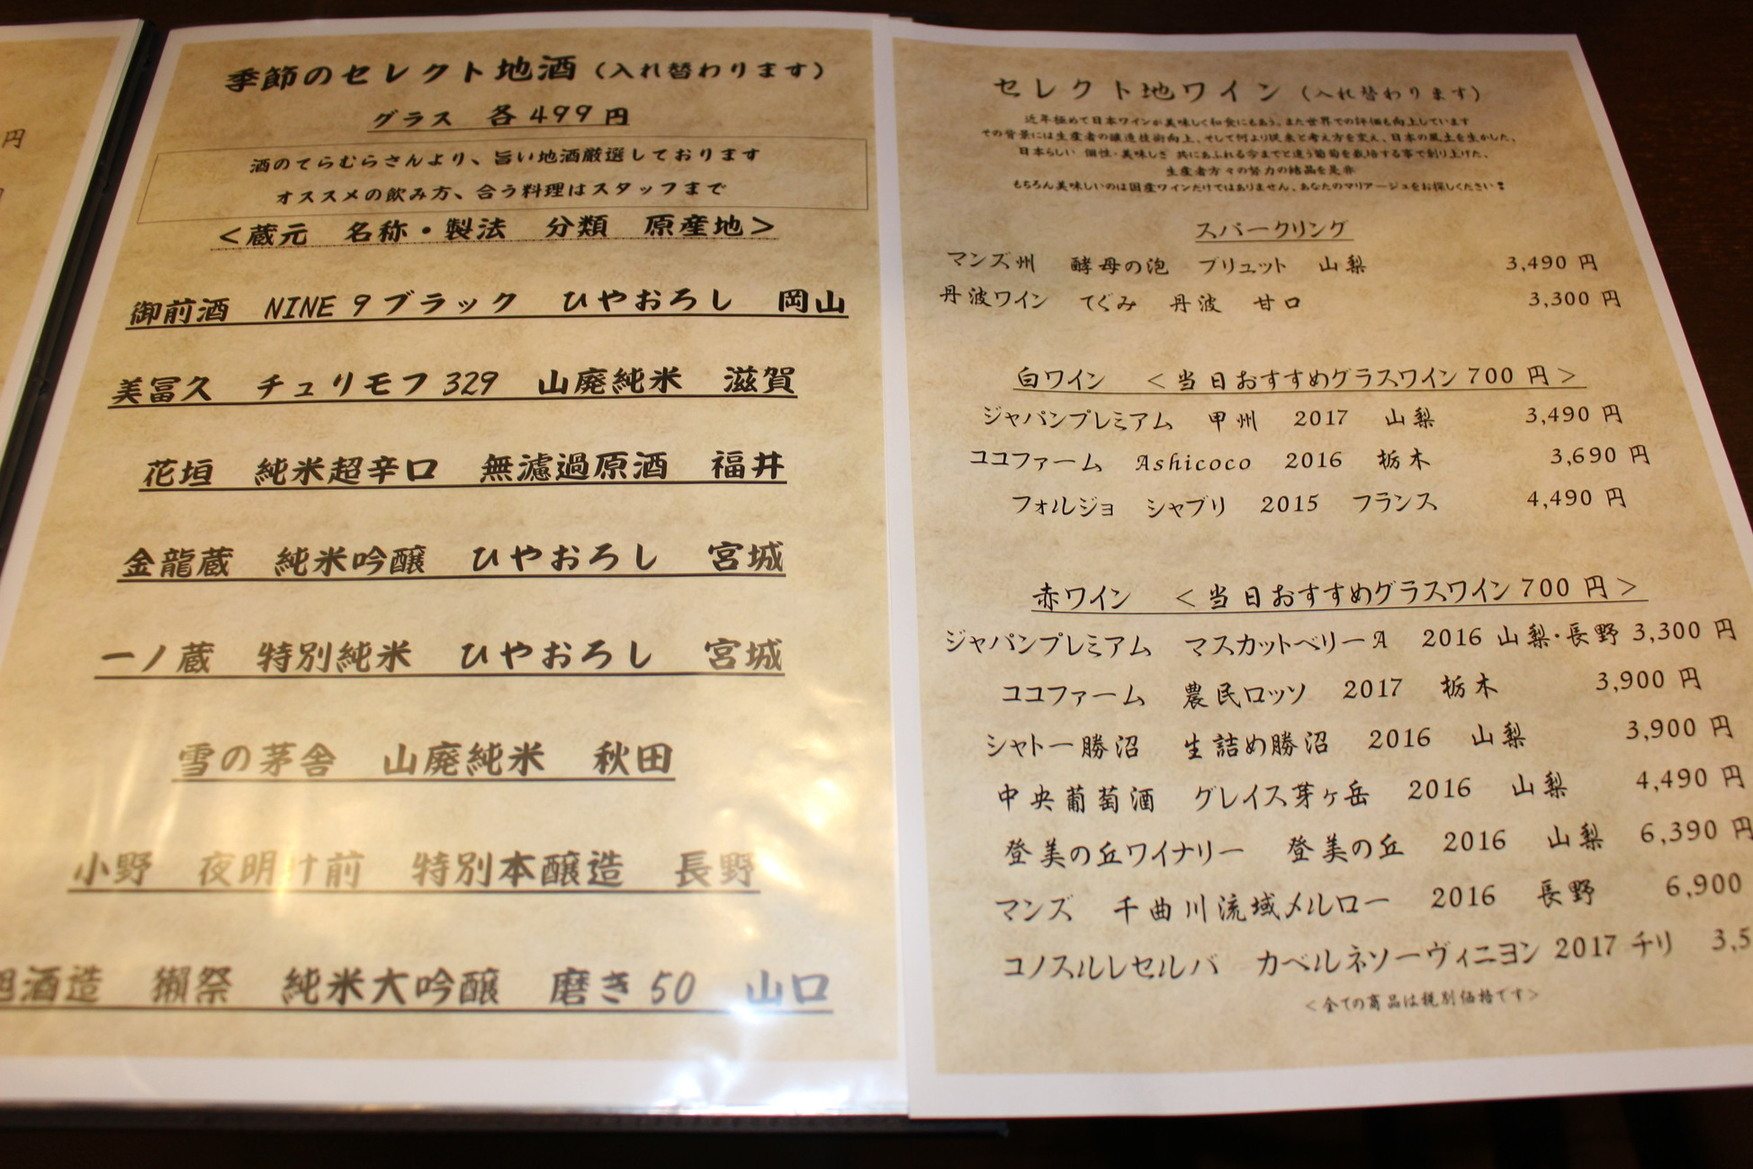 円
季節のセレクト地酒（入れ替わります）
グラス 各499円
酒のてらむらさんより、旨い地酒厳選しております
オススメの飲み方、合う料理はスタッフまで
＜蔵元 名称・製法 分類 原産地＞
御前酒 NINE 9ブラック ひやおろし 岡山
美冨久 チュリモフ329 山廃純米 滋賀
花垣 純米超辛口 無濾過原酒 福井
金龍蔵 純米吟醸 ひやおろし 宮城
一ノ蔵 特別純米 ひやおろし 宮城
雪の茅舎 山廃純米 秋田
小野 夜明け前 特別本醸造 長野
旭酒造 獺祭 純米大吟醸 磨き50 山口
セレクト地ワイン（入れ替わります）
近年極めて日本ワインが美味しく和食にもあう、また世界での評価も向上しています
その背景には生産者の醸造技術向上、そして何より従来と考え方を変え、日本の風土を生かした、
日本らしい 個性・美味しさ 共にあふれる今までと違う葡萄を栽培する事で創り上げた、
生産者方々の努力の結晶を是非
もちろん美味しいのは国産ワインだけではありません、あなたのマリアージュをお探しください！
スパークリング
マンズ州 酵母の泡 ブリュット 山梨 3,490 円
丹波ワイン てぐみ 丹波 甘口 3,300 円
白ワイン ＜当日おすすめグラスワイン700 円＞
ジャパンプレミアム 甲州 2017 山梨 3,490 円
ココファーム Ashicoco 2016 栃木 3,690 円
フォルジョ シャブリ 2015 フランス 4,490 円
赤ワイン ＜当日おすすめグラスワイン700 円＞
ジャパンプレミアム マスカットベリーA 2016 山梨・長野 3,300 円
ココファーム 農民ロッソ 2017 栃木 3,900 円
シャトー勝沼 生詰め勝沼 2016 山梨 3,900 円
中央葡萄酒 グレイス茅ヶ岳 2016 山梨 4,490 円
登美の丘ワイナリー 登美の丘 2016 山梨 6,390 円
マンズ 千曲川流域メルロー 2016 長野 6,900
コノスルレセルバ カベルネソーヴィニヨン 2017 チリ 3,5
＜全ての商品は税別価格です＞